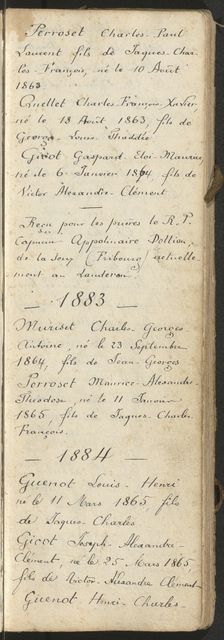 Perroset Charles-Paul
Laurent fils de Jaques-Char-
les-François, né le 10 Août
1863
Quellet Charles-François-Xavier,
né le 18 Août 1863, fils de
George-Louis-Thaddée
Gicot Gaspard-Eloi-Maurice,
né le 6 Janvier 1864 fils de
Victor Alexandre-Clément
Reçu pour les prières le R. P.
Capucin Appolinaire Dellion,
de la Joux (Fribourg) actuelle-
ment au Landeron.
— 1883 —
Muriset Charles-Georges
Antoine, né le 23 Septembre
1864, fils de Jean-Georges
Perroset Maurice-Alexandre
Théodose, né le 11 Janvier
1865 fils de Jaques-Charles
François.
— 1884 —
Guenot Louis-Henri
né le 11 Mars 1865, fils
de Jaques-Charles
Gicot Joseph-Alexandre-
Clément, né le 25 Mars 1865,
fils de Victor-Alexandre Clément
Guenot Henri-Charles-